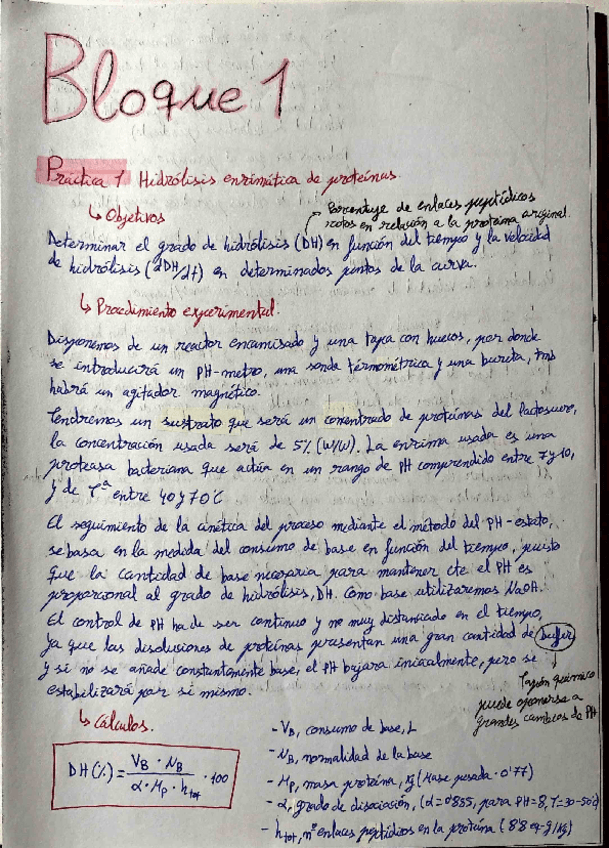 Bloque 1
Práctica 1 Hidrólisis enzimática de proteínas.
↳ Objetivos
Porcentaje de enlaces peptídicos
rotos en relación a la proteína original.
Determinar el grado de hidrólisis (DH) en función del tiempo y la velocidad
de hidrólisis (dDH/dt) en determinados puntos de la curva.
↳ Procedimiento experimental.
Disponemos de un reactor encamisado y una tapa con huecos, por donde
se introducirá un PH-metro, una sonda térmométrica y una bureta, tmb
habrá un agitador magnético.
Tendremos un sustrato que será un concentrado de proteínas del lactosuero,
la concentración usada será de 5% (W/W). La enzima usada es una
proteasa bacteriana que actúa en un rango de PH comprendido entre 7 y 10,
y de Tª entre 40 y 70ºC
El seguimiento de la cinética del proceso mediante el método del PH-estato,
se basa en la medida del consumo de base en función del tiempo, puesto
que la cantidad de base necesaria para mantener cte el PH es
proporcional al grado de hidrólisis, DH. Como base utilizaremos NaOH.
El control de PH ha de ser continuo y no muy distanciado en el tiempo,
ya que las disoluciones de proteínas presentan una gran cantidad de buffer
y si no se añade constantemente base, el PH bajara inicialmente, pero se
estabilizará por si mismo.
Tapón químico
puede oponerse a
grandes cambios de PH
↳ Cálculos.
DH (%) = (V_B · N_B) / (α · M_P · h_tot) · 100
- V_B, consumo de base, L
- N_B, normalidad de la base
- M_P, masa proteína, kg (Mase pesada · 0'77)
- α, grado de disociación, (α = 0'885, para PH=8, T=30-50ºC)
- h_tot, nº enlaces peptídicos en la proteína (8'8 eq-g/kg)